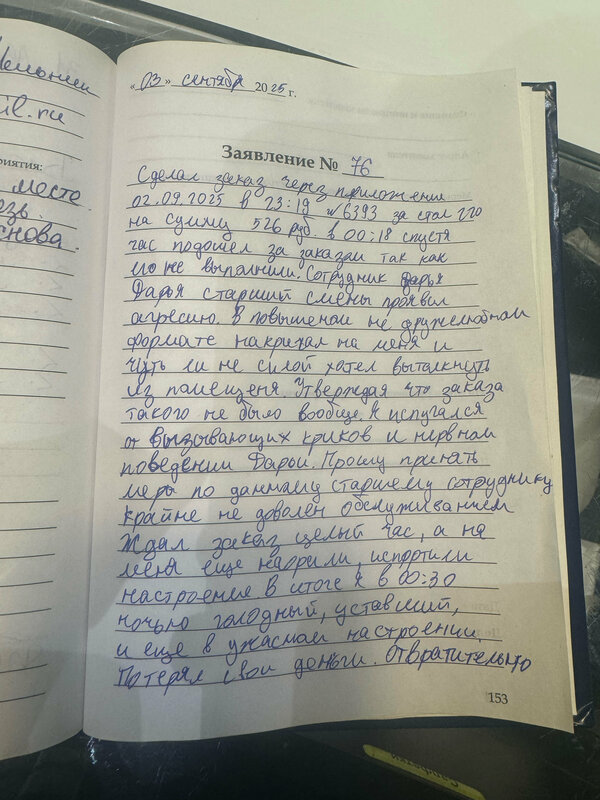 Мельник
il.ru
риятия:
месте
язь.
снова.
«03» сентября 2025 г.
Заявление № 76
Сделал заказ через приложении
02.09.2025 в 23:19 №6393 за стол 220
на сумму 526 руб в 00:18 спустя
час подошёл за заказом так как
его не выполнили. Сотрудник Дарья
Дарья старший смены проявил
агресию. В повышеном не дружелюбном
формате накричал на меня и
чуть ли не силой хотел вытолкнуть
из помещеня. Утверждая что заказа
такого не было вообще. Я испугался
от вызывающих криков и нервном
поведении Дарьи. Прошу принять
меры по данному старшему сотруднику
крайне не доволен обслуживанием
Ждал заказ целый час, а на
меня еще наорали, испортили
настроение в итоге я в 00:30
ночью голодный, уставший,
и еще в ужасном настроении.
Потерял свои деньги. Отвратительно
153